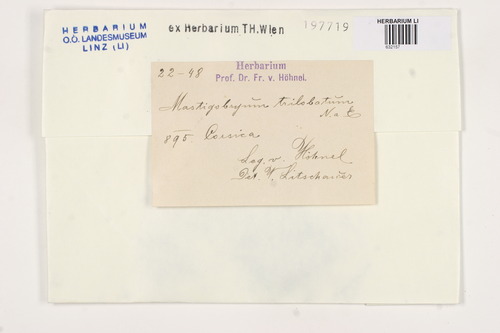 HERBARIUM
O.Ö. LANDESMUSEUM
LINZ (LI)
ex Herbarium TH.Wien
197719
HERBARIUM LI
632157
22-48
Herbarium
Prof. Dr. Fr. v. Höhnel.
Mastigobryum trilobatum
N. a E
895. Corsica
Leg. v. Höhnel
Det. V. Litschauer